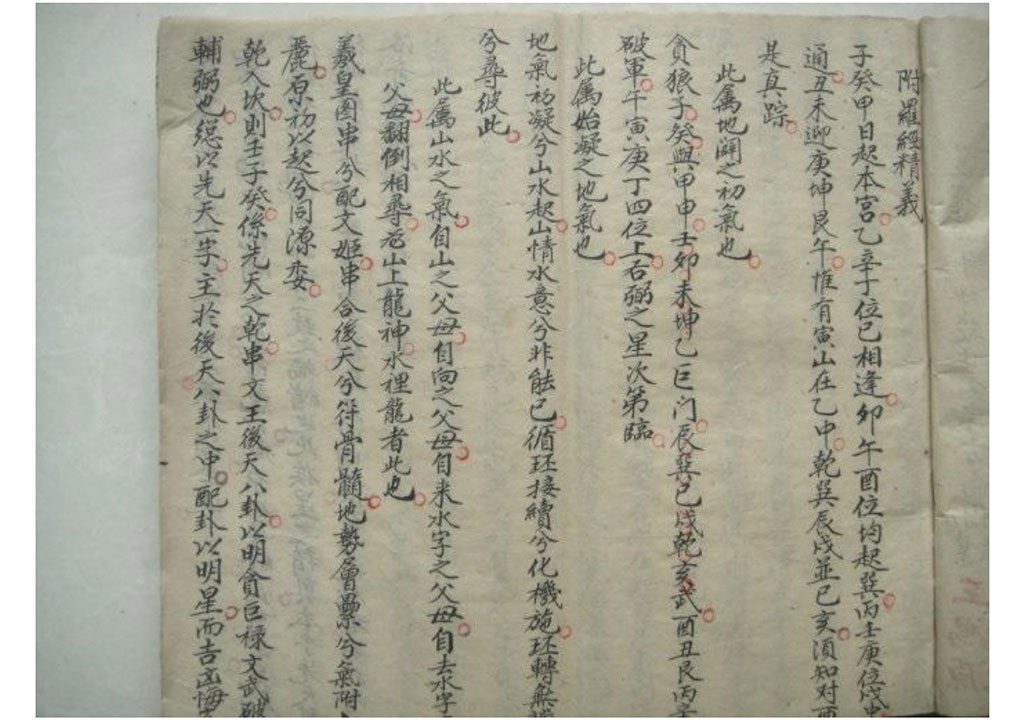 附羅經精義
子癸甲日起本宮乙辛丁位已相逢卯午酉位均起巽丙壬庚位戌
通丑未迎庚坤艮午惟有寅山在乙中乾巽辰戌並巳亥須知对
是真踪
此属地闢之初氣也
貪狼子癸與甲申壬卯未坤乙巨门辰巽巳戌乾亥武酉丑艮丙
破軍午寅庚丁四位上右弼之星次第臨
此属始凝之地氣也
地氣初凝兮山水起山情水意兮非能已循环接續兮化機施环轉無
兮尋彼此
此属山水之氣自山之父母自向之父母自来水字之父母自去水字
父母翻倒相尋为山上龍神水裡龍者此也
羲皇图串兮配文姬串合後天兮符骨髓地勢層纍兮氣附
麗原初以起兮同源委
乾入坎則壬子癸係先天之乾串文王後天八卦以明貪巨禄文武破
輔弼也総以先天一字主於後天八卦之中配卦以明星而吉凶悔